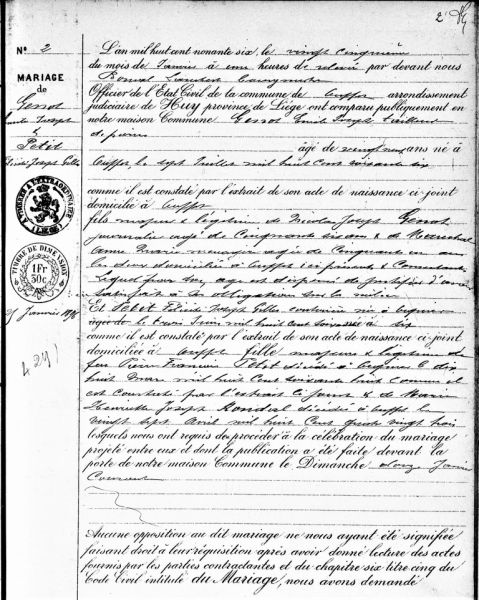 2
N° 2
MARIAGE
de
Genot
Joseph
&
Petit
Joseph
TIMBRE A L'EXTRAORDINAIRE
(LIÈGE)
TIMBRE DE DIMENSION
1 Fr
30c
25 Janvier 1896
429
L'an mil huit cent nonante six, le vingt cinquième
du mois de Janvier à une heures de relevée par devant nous
Officier de l'Etat Civil de la commune de arrondissement
judiciaire de Huy province de Liège ont comparu publiquement en
notre maison Commune Genot Emile Joseph tailleur
de pierres
âgé de vingt neuf ans né à
le sept Juillet mil huit cent soixante six
comme il est constaté par l'extrait de son acte de naissance ci-joint
domicilié à
fils majeur & légitime de Nicolas Joseph Genot
journalier âgé de Cinquante six ans & de Maréchal
Anne Marie ménagère âgée de Cinquante un ans
les deux domiciliés à ici présents & Consentants
Lequel futur
satisfait à ses obligations sur la milice
Et Petit Félicité Joseph couturière née à
âgée de le trois Juin mil huit cent soixante & six
comme il est constaté par l'extrait de son acte de naissance ci-joint
domiciliée à fille majeure & légitime de
feu Pierre François Petit décédé à le dix
huit Mars mil huit Cent soixante huit comme il
est Constaté par l'extrait ci joint & de Marie
Henriette Joseph décédée à le
vingt sept Avril mil huit Cent quatre vingt trois
lesquels nous ont requis de procéder à la célébration du mariage
projeté entre eux et dont la publication a été faite devant la
porte de notre maison Commune le Dimanche douze Janvier
Courant
Aucune opposition au dit mariage ne nous ayant été signifiée
faisant droit à leur réquisition après avoir donné lecture des actes
fournis par les parties contractantes et du chapitre six titre cinq du
Code Civil intitulé du Mariage, nous avons demandé